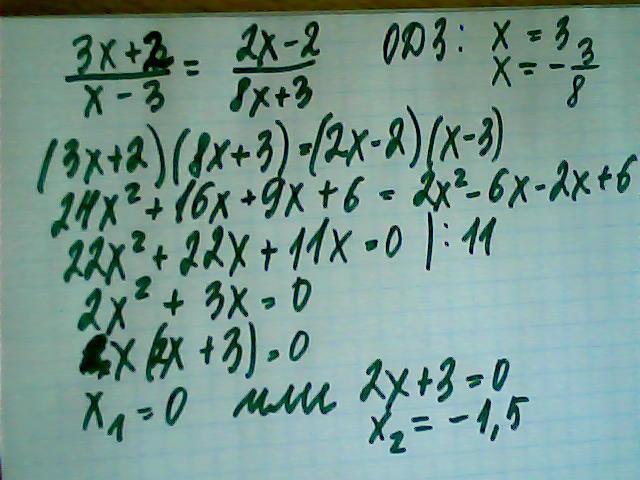 (3x+2)/(x-3) = (2x-2)/(8x+3) ОДЗ: x = 3
x = -3/8
(3x+2)(8x+3)=(2x-2)(x-3)
24x² + 16x + 9x + 6 = 2x² - 6x - 2x + 6
22x² + 22x + 11x = 0 |: 11
2x² + 3x = 0
x(2x + 3) = 0
x₁ = 0 или 2x + 3 = 0
x₂ = -1,5